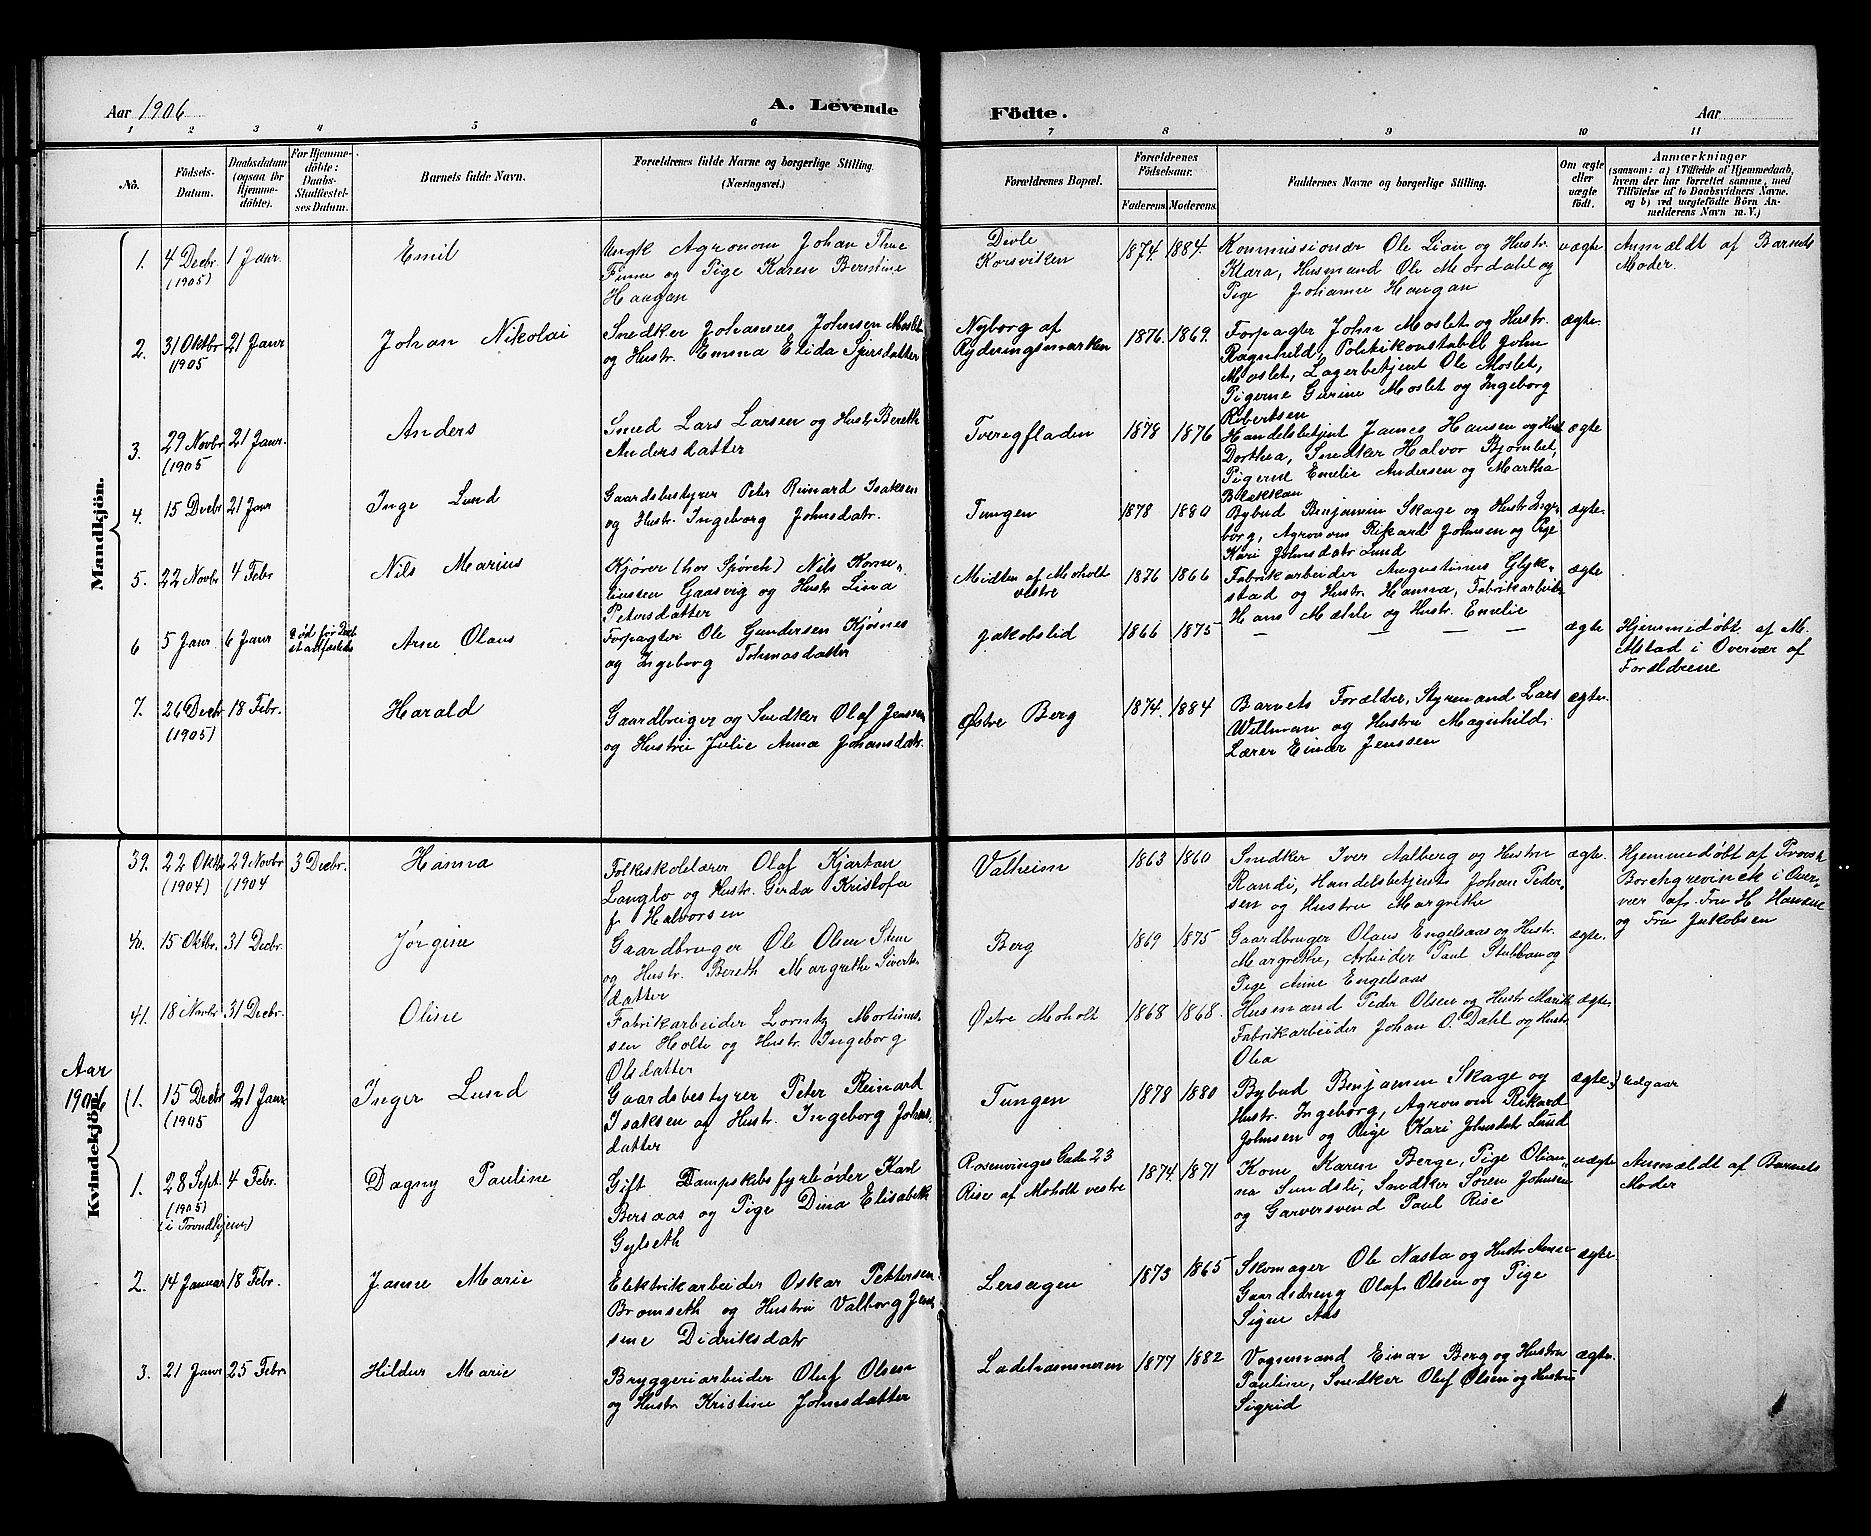 Aar 1906
A. Levende
Födte.
Aar
1 2 3 4 5 6 7 8 9 10 11
No.
Födsels-
Datum.
Daabsdatum
(ogsaa for
Hjemme-
döbte).
For Hjemme-
döbte:
Daabs-
Stadfæstel-
ses Datum.
Barnets fulde Navn.
Forældrenes fulde Navne og borgerlige Stilling.
(Næringsvei.)
Forældrenes Bopæl.
Forældrenes
Födselsaar.
Faderens. Moderens.
Faddernes Navne og borgerlige Stilling.
Om ægte
eller
uægte
födt.
Anmærkninger
(saasom: a) i Tilfælde af Hjemmedaab,
hvem der har forrettet samme, med
Tilföielse af to Daabsvidners Navne.
og b) ved uægtefödte Börn An-
melderens Navn m. V.)
Mandkjön.
1. 4 Decbr 1 Jaur. Emil
(1905)
Ungk Agronom Johan Thue
Finne og Pige Karen Berntine
Haugan
Devle
Korsviken
1874. 1884.
Kommissionær Ole Lian og Hustr.
Klara, Husmand Ole Mordahl og
Pige Johanne Haugan
uægte
Anmældt af Barnets
Moder.
2. 31 Oktbr 21 Jaur Johan Nikolai
1905
Snedker Johannes Johnsen Moslet
og Hustr. Emma Elida Sjursdatter
Nyborg af
Ryderingsmarken
1876. 1869.
Forpagter John Moslet og Hustr.
Ragnhild, Politikonstabel John
Moslet, Lagerbetjent Ole Moslet,
Pigerne Gurine Moslet og Ingeborg
Robertsen
ægte.
3. 29 Novbr 21 Jaur. Anders
(1905
Smed Lars Larsen og Hustr Bereth
Andersdatter
Tveregfladen
1878 1876
Handelsbetjent James Hansen og Hust
Dorthea, Snedker Halvor Bjørnbet,
Pigerne Emelie Andersen og Martha
Blekkan
ægte
4. 15 Decbr 21 Jaur Inge Lund
Gaardsbestyrer Peter Reinard Isaksen
og Hustr. Ingeborg Johnsdatr.
Tungen
1878 1880
Bybud Benjamin Skage og Hustr Inge-
borg, Agronom Rikard Johnsen og Pige
Kari Johnsdatr Lund
ægte.
5. 22 Novbr 4 Febr Nils Marius
Kjører (hos Spörck) Nils Korne-
liussen Gaasvig og Hustr Lina
Petersdatter
Midten af Moholt
vestre
1876 1866
Fabrikarbeider Augustinus Glyk-
stad og Hustr. Hanna, Fabrikarbeider
Hans Mæhle og Hustr. Emelie
ægte
6 5 Jaur 6 Jaur
Död för Daab
stadfæstedes
Arne Olaus
Forpagter Ole Gundersen Kjøsnes
og Ingeborg Tohmasdatter
Jakobslid
1866 1875
— — — —
ægte
Hjemmedøbt af M.
Alstad i Overvær af
Forældrene
7. 26 Decbr 18 Febr. Harald
(1905)
Gaardbruger og Snedker Olaf Jenssen
og Hustru Julie Anna Johansdatr.
Østre Berg
1874. 1884
Barnets Forældre, Styrmand Lars
Willman og Hustru Magnhild,
Lærer Einar Jenssen
ægte.
Kvindekjön.
39. 22 Oktbr 29 Novbr 3 Decbr. Hanna
(1904) (1904
Folkeskolelærer Olaf Kjartan
Langlo og Hustr. Gerda Kristofa
f. Halvorsen
Valheim
1863 1860
Snedker Iver Aalberg og Hustru
Randi, Handelsbetjent Johan Peder-
sen og Hustru Margrethe
ægte.
Hjemmedøbt af Provst
Borchgrevinck i Over-
vær af Fru H. Hansen
og Fru Jakobsen
40. 15 Oktbr. 31 Decbr. Jørgine
Gaardbruger Ole Olsen Stene
og Hustr. Bereth Margrethe Siverts
datter
Berg
1869 1875
Gaardbruger Olaus Engelsaas og Hustr.
Margrethe, Arbeider Paul Stubban og
Pige Anne Engelsaas
ægte.
41. 18 Novbr 31 Decbr. Oline
Fabrikarbeider Lorntz Mortins-
sen Holte og Hustr. Ingeborg
Olsdatter
Østre Moholt
1868 1868.
Husmand Peder Olsen og Hustr Marith
Fabrikarbeider Johan O. Dahl og Hustr
Olea
ægte
Aar
1906
(1. 15 Decbr 21 Jaur Inger Lund
(1905
Gaardsbestyrer Peter Reinard
Isaksen og Hustr. Ingeborg Johns-
datter
Tungen
1878 1880
Bybud Benjamin Skage og
Hustr. Ingeborg, Agronom Rikard
Johnsen og Pige Kari Johnsdatr Lund
ægte) udgaar
1. 28 Sept. 4 Febr. Dagny Pauline
(1905)
(i Trondhjem)
Gift Dampskibsfyrbøder Karl
Bersaas og Pige Dina Elisabeth
Gylseth
Rosenvinges Gade 23
Rise af Moholt vestre
1874. 1871
Kone Karen Berge, Pige Olian-
na Sundsli, Snedker Sören Johnsen
og Garversvend Paul Rise
uægte
Anmældt af Barnets
Moder
2. 14 Januar 18 Febr. Janne Marie
Elektrikarbeider Oskar Pettersen
Bromseth og Hustru Valborg Jen-
sine Didriksdatr
Lersagen
1873 1865
Skomager Ole Nasta og Hustr Anne
Gaardsdreng Olaf Olsen og Pige
Signe Aas
ægte
3. 21 Jaur 25 Febr Hildur Marie
Bryggeriarbeider Oluf Olsen
og Hustr Kristine Johnsdatter
Ladehammeren
1877 1882
Vognmand Einar Berg og Hustru
Pauline, Snedker Oluf Olsen og Hustru
Sigrid
ægte.